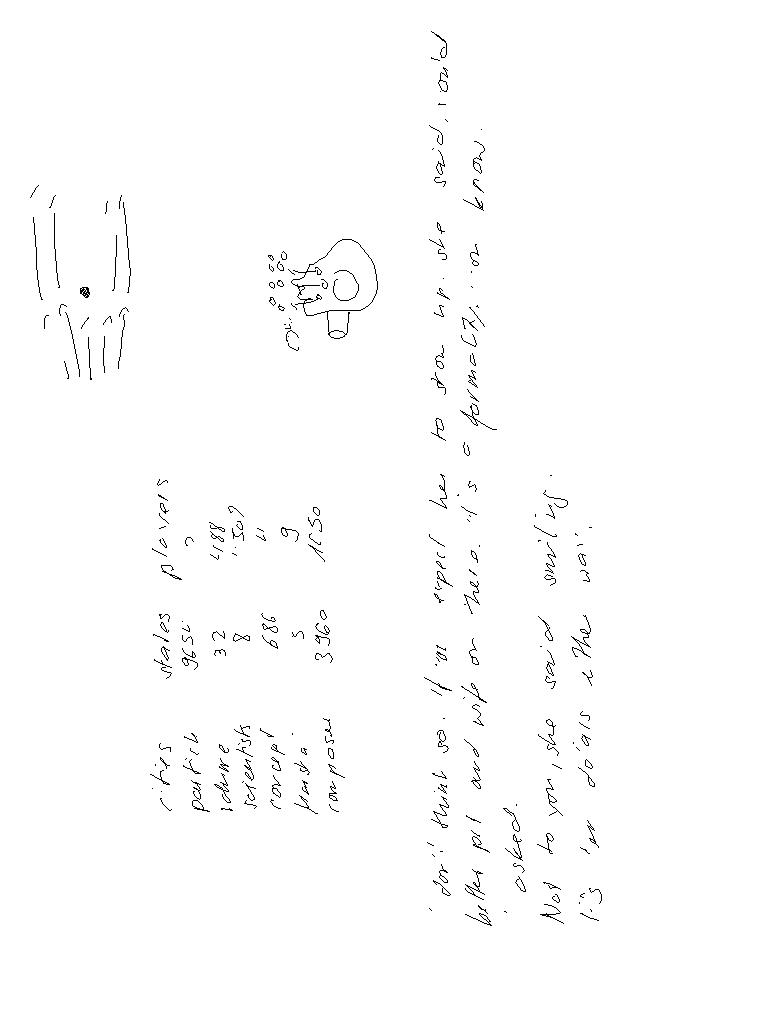 cities states players
particle 965
schare 32 488
scientists 8 .509
concept 686 4
hasta. 5 9
composer 3960 1650
I don't think so. If you expect her to show up. she said, you'd
better put and wife on there. it's a formality. you know.
I asked.
Not to you, she said smiling.
It's in doials either way.